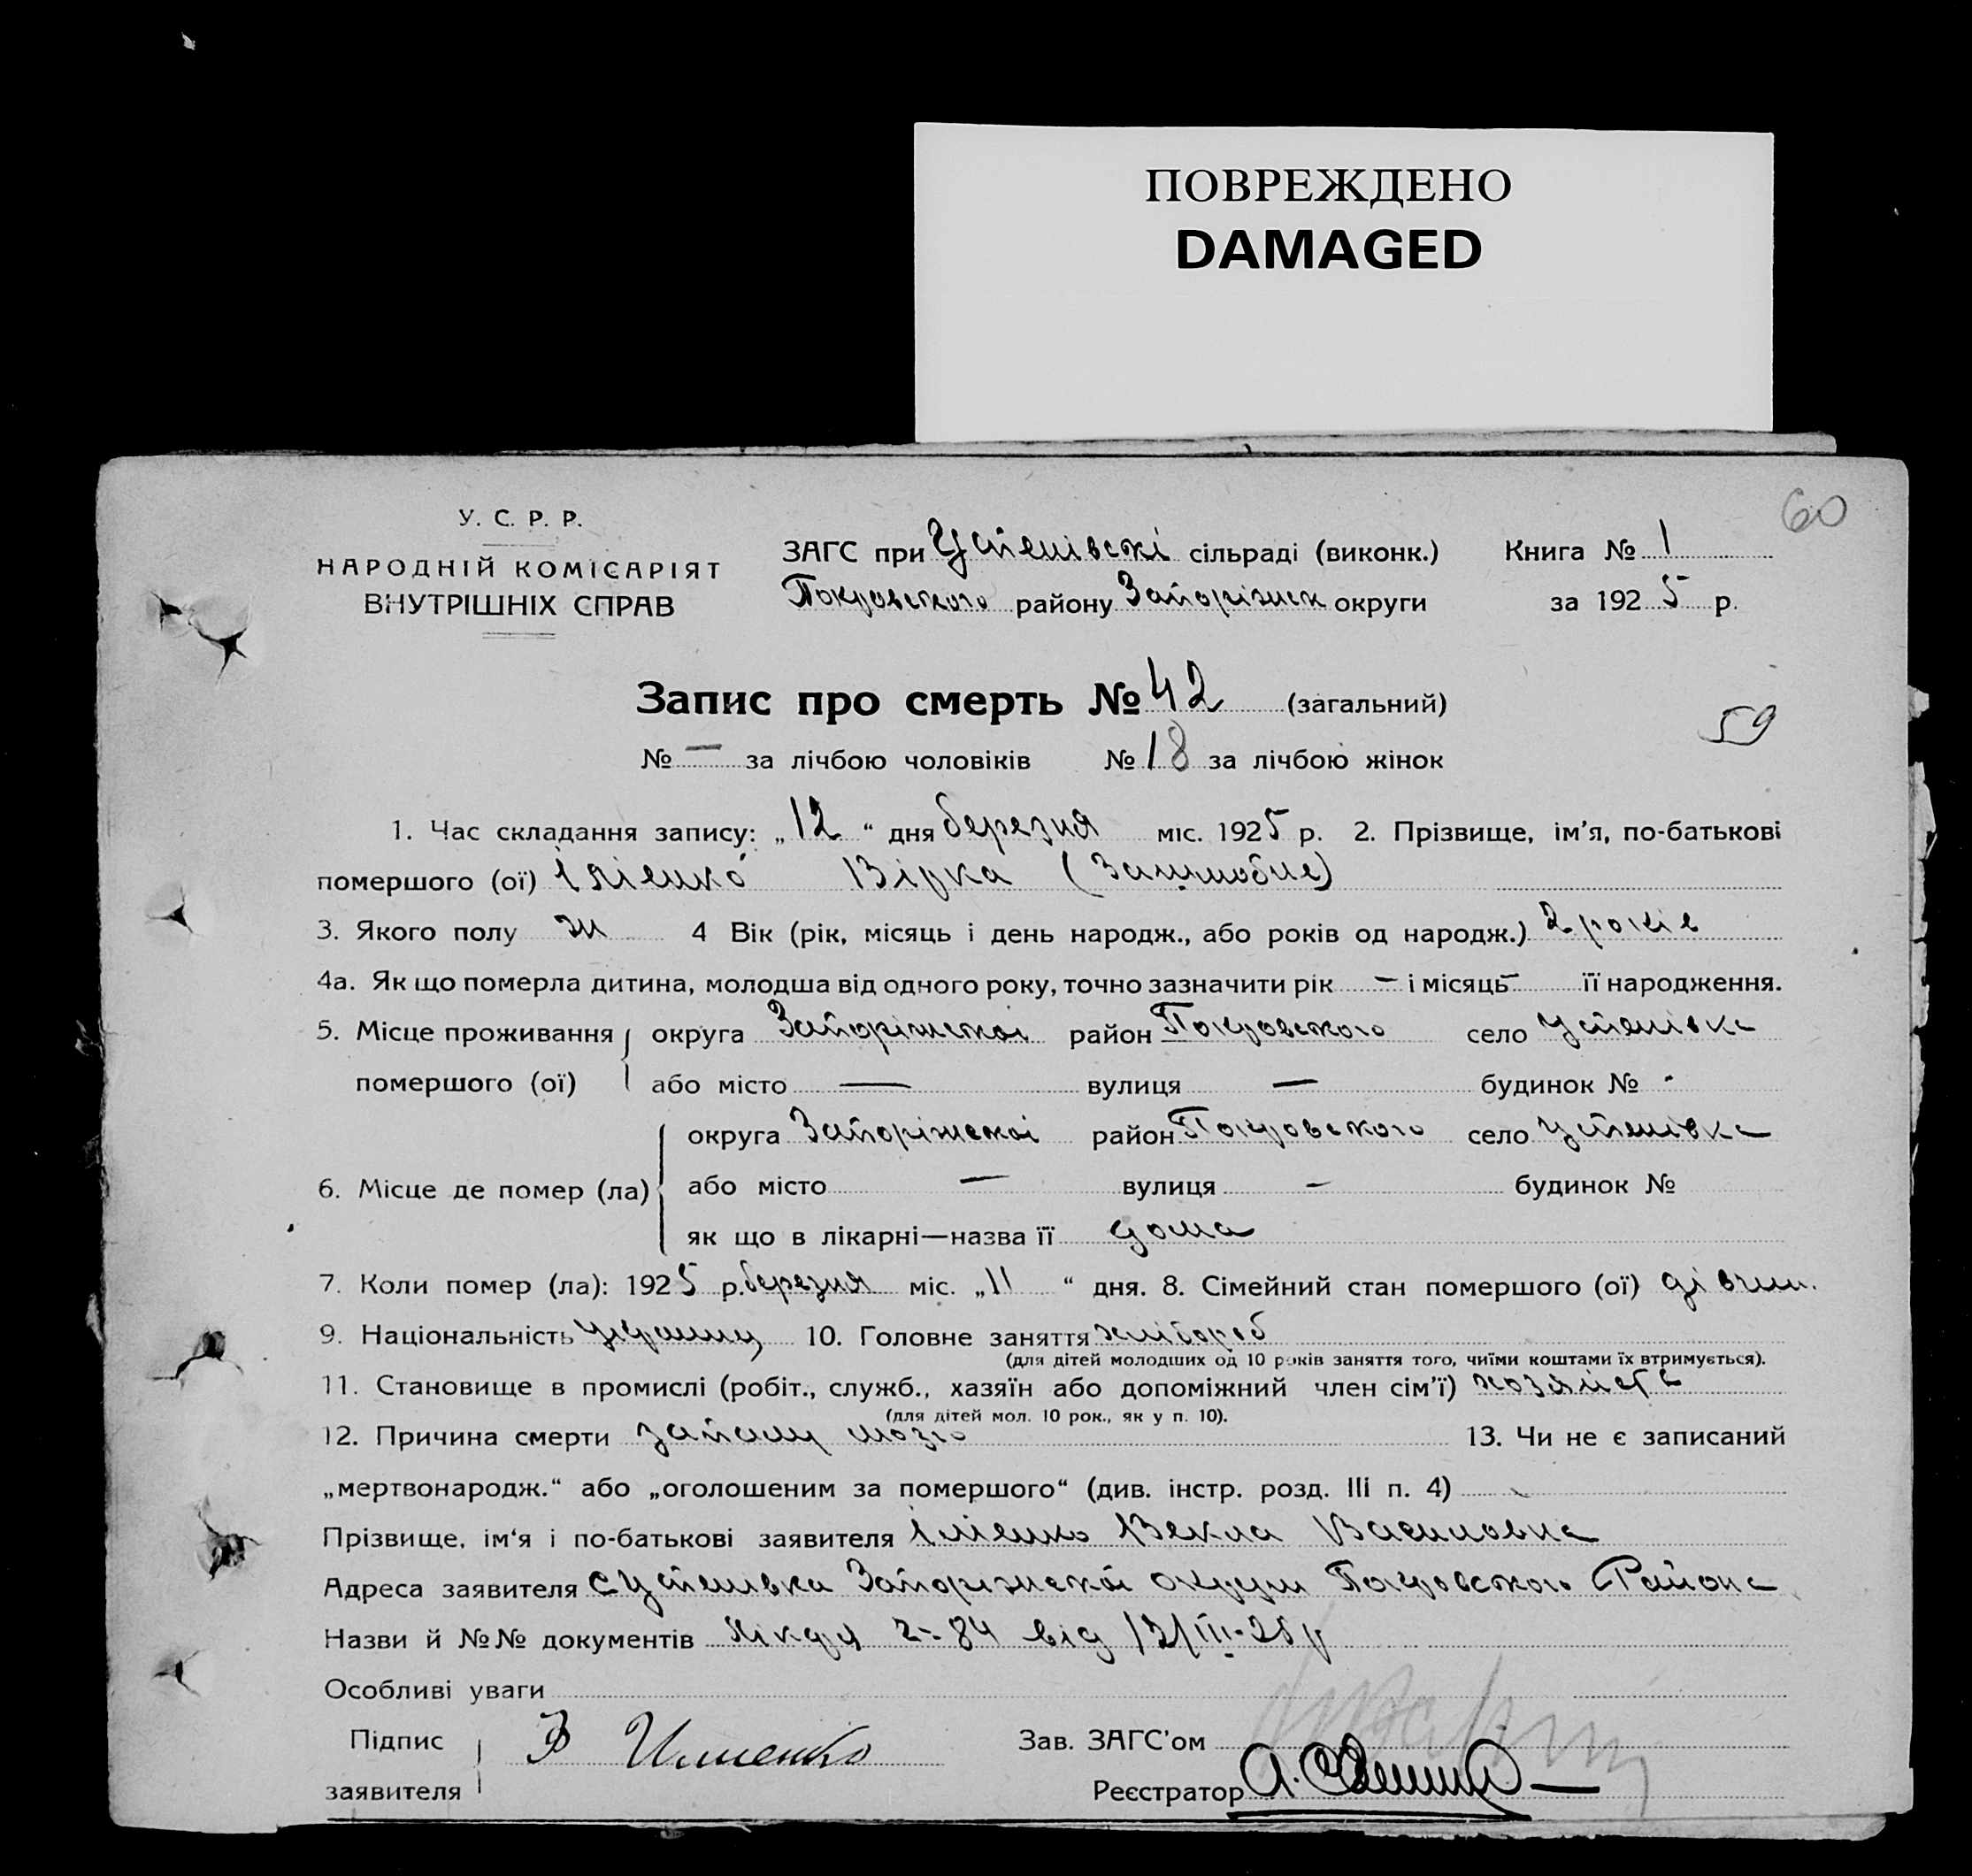 ПОВРЕЖДЕНО
DAMAGED
60
У. С. Р. Р.
НАРОДНІЙ КОМІСАРІЯТ
ВНУТРІШНІХ СПРАВ
ЗАГС при сільраді (виконк.) Книга № 1
Покровського району Запоріжск округи за 1925 р.
Запис про смерть № 42 (загальний)
59
№ — за лічбою чоловіків № 18 за лічбою жінок
1. Час складання запису: „12“ дня березня міс. 1925 р. 2. Прізвище, ім’я, по-батькові
помершого (ої) Вірка
3. Якого полу ж 4 Вік (рік, місяць і день народж., або років од народж.) 2 років
4а. Як що померла дитина, молодша від одного року, точно зазначити рік – і місяць – її народження.
5. Місце проживання округа Запоріжскоі район Покровського село Устенівка
помершого (ої) або місто — вулиця — будинок № -
округа Запоріжскоі район Покровського село Устенівка
6. Місце де помер (ла) або місто — вулиця – будинок №
як що в лікарні—назва її дома
7. Коли помер (ла): 1925 р. березня міс. „11“ дня. 8. Сімейний стан помершого (ої) дівчин.
9. Національність 10. Головне заняття хлібороб
(для дітей молодших од 10 років заняття того, чиїми коштами їх втримується).
11. Становище в промислі (робіт., служб., хазяїн або допоміжний член сім’ї)
(для дітей мол. 10 рок., як у п. 10).
12. Причина смерти мозго 13. Чи не є записаний
„мертвонародж.“ або „оголошеним за помершого“ (див. інстр. розд. III п. 4)
Прізвище, ім‘я і по-батькові заявителя Векла Василовна
Адреса заявителя с Устенівка Запоріжскоі округи Покровського Района
Назви й №№ документів 84 від 12/III-25 р
Особливі уваги
Підпис
заявителя
Зав. ЗАГС’ом
Реєстратор